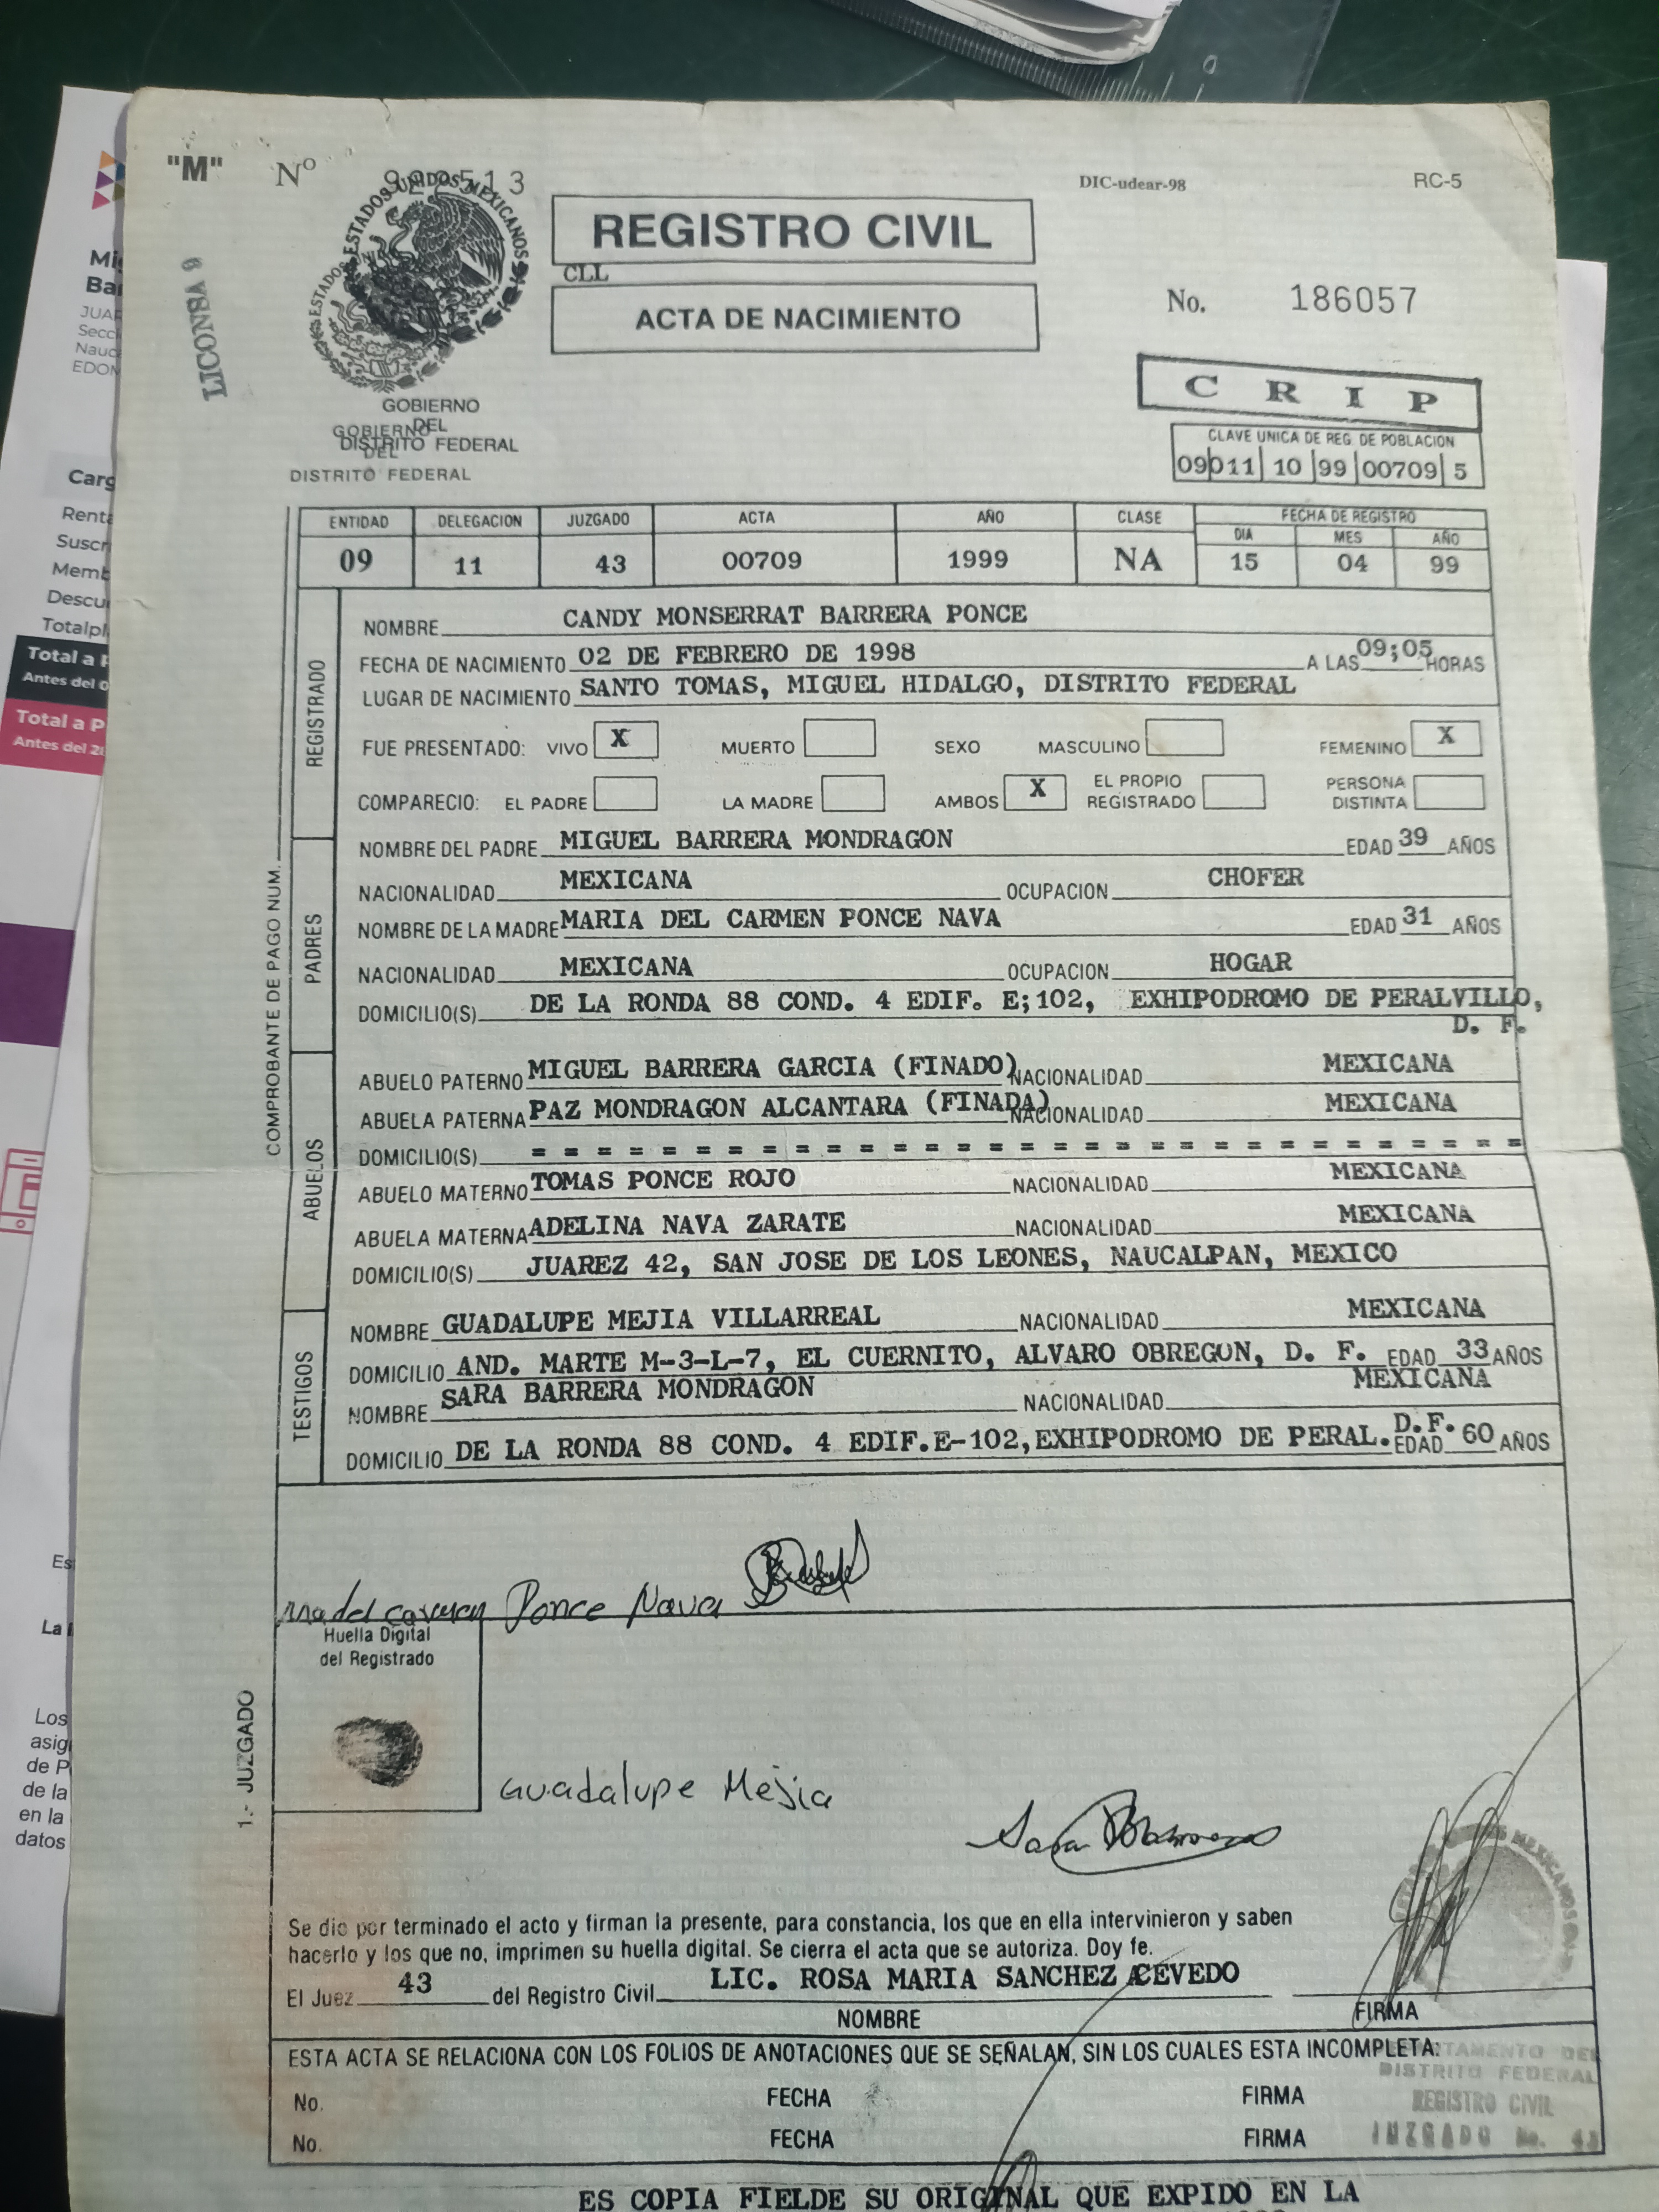 "M" Nº 922513
DIC-udear-98 RC-5
ESTADOS UNIDOS MEXICANOS
REGISTRO CIVIL
CLL
ACTA DE NACIMIENTO
No. 186057
LICONSA 9
GOBIERNO
DEL
DISTRITO FEDERAL
GOBIERNO
DEL
DISTRITO FEDERAL
C R I P
CLAVE UNICA DE REG. DE POBLACION
09 011 10 99 00709 5
ENTIDAD DELEGACION JUZGADO ACTA AÑO CLASE FECHA DE REGISTRO
DIA MES AÑO
09 11 43 00709 1999 NA 15 04 99
COMPROBANTE DE PAGO NUM.
REGISTRADO
NOMBRE CANDY MONSERRAT BARRERA PONCE
FECHA DE NACIMIENTO 02 DE FEBRERO DE 1998 A LAS 09;05 HORAS
LUGAR DE NACIMIENTO SANTO TOMAS, MIGUEL HIDALGO, DISTRITO FEDERAL
FUE PRESENTADO: VIVO X MUERTO SEXO MASCULINO FEMENINO X
COMPARECIO: EL PADRE LA MADRE AMBOS X EL PROPIO REGISTRADO PERSONA DISTINTA
PADRES
NOMBRE DEL PADRE MIGUEL BARRERA MONDRAGON EDAD 39 AÑOS
NACIONALIDAD MEXICANA OCUPACION CHOFER
NOMBRE DE LA MADRE MARIA DEL CARMEN PONCE NAVA EDAD 31 AÑOS
NACIONALIDAD MEXICANA OCUPACION HOGAR
DOMICILIO(S) DE LA RONDA 88 COND. 4 EDIF. E;102, EXHIPODROMO DE PERALVILLO,
D. F.
ABUELOS
ABUELO PATERNO MIGUEL BARRERA GARCIA (FINADO) NACIONALIDAD MEXICANA
ABUELA PATERNA PAZ MONDRAGON ALCANTARA (FINADA) NACIONALIDAD MEXICANA
DOMICILIO(S) = = = = = = = = = = = = = = = = = = = = = = = = = = = =
ABUELO MATERNO TOMAS PONCE ROJO NACIONALIDAD MEXICANA
ABUELA MATERNA ADELINA NAVA ZARATE NACIONALIDAD MEXICANA
DOMICILIO(S) JUAREZ 42, SAN JOSE DE LOS LEONES, NAUCALPAN, MEXICO
TESTIGOS
NOMBRE GUADALUPE MEJIA VILLARREAL NACIONALIDAD MEXICANA
DOMICILIO AND. MARTE M-3-L-7, EL CUERNITO, ALVARO OBREGON, D. F. EDAD 33 AÑOS
NOMBRE SARA BARRERA MONDRAGON NACIONALIDAD MEXICANA
DOMICILIO DE LA RONDA 88 COND. 4 EDIF.E-102,EXHIPODROMO DE PERAL. D.F. EDAD 60 AÑOS
Ma del carmen Ponce Nava
Huella Digital
del Registrado
1.- JUZGADO
Guadalupe Mejia
Sara
Se dio por terminado el acto y firman la presente, para constancia, los que en ella intervinieron y saben
hacerlo y los que no, imprimen su huella digital. Se cierra el acta que se autoriza. Doy fe.
El Juez 43 del Registro Civil LIC. ROSA MARIA SANCHEZ ACEVEDO
NOMBRE FIRMA
ESTA ACTA SE RELACIONA CON LOS FOLIOS DE ANOTACIONES QUE SE SEÑALAN, SIN LOS CUALES ESTA INCOMPLETA:
No. FECHA FIRMA
No. FECHA FIRMA
DISTRITO FEDERAL
REGISTRO CIVIL
JUZGADO No. 43
ES COPIA FIELDE SU ORIGINAL QUE EXPIDO EN LA
Total a
Antes del
Total a P
Antes del
Los
de la
en la
datos